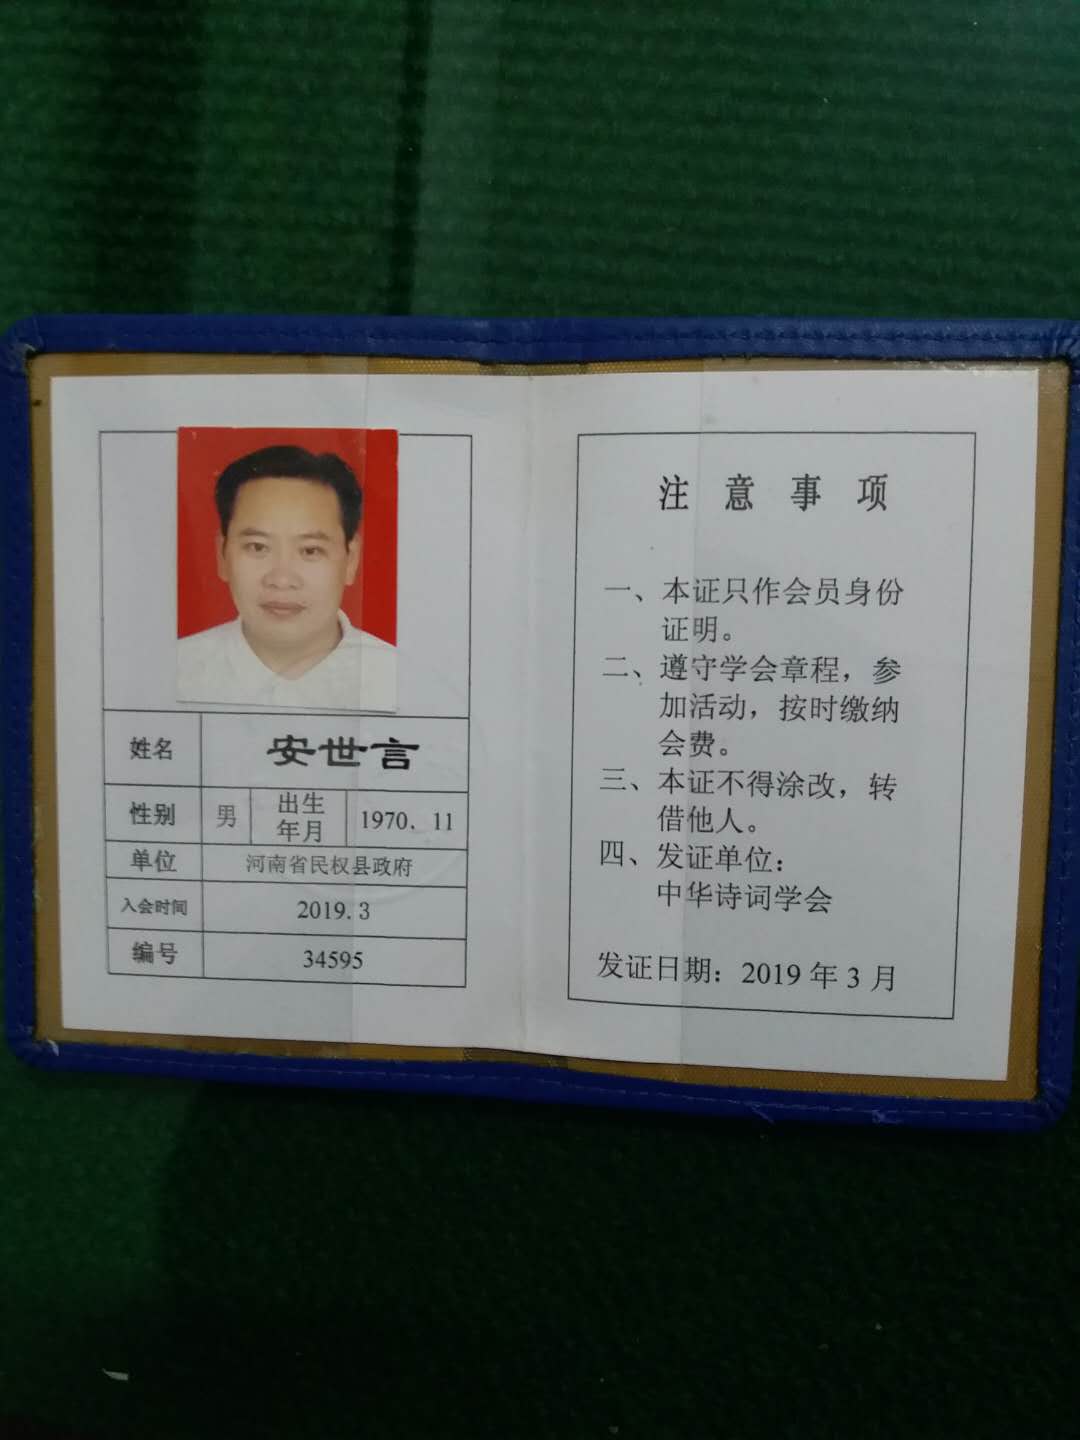 姓名 安世言
性别 男 出生年月 1970.11
单位 河南省民权县政府
入会时间 2019.3
编号 34595
注意事项
一、本证只作会员身份
证明。
二、遵守学会章程，参
加活动，按时缴纳
会费。
三、本证不得涂改，转
借他人。
四、发证单位：
中华诗词学会
发证日期：2019年3月